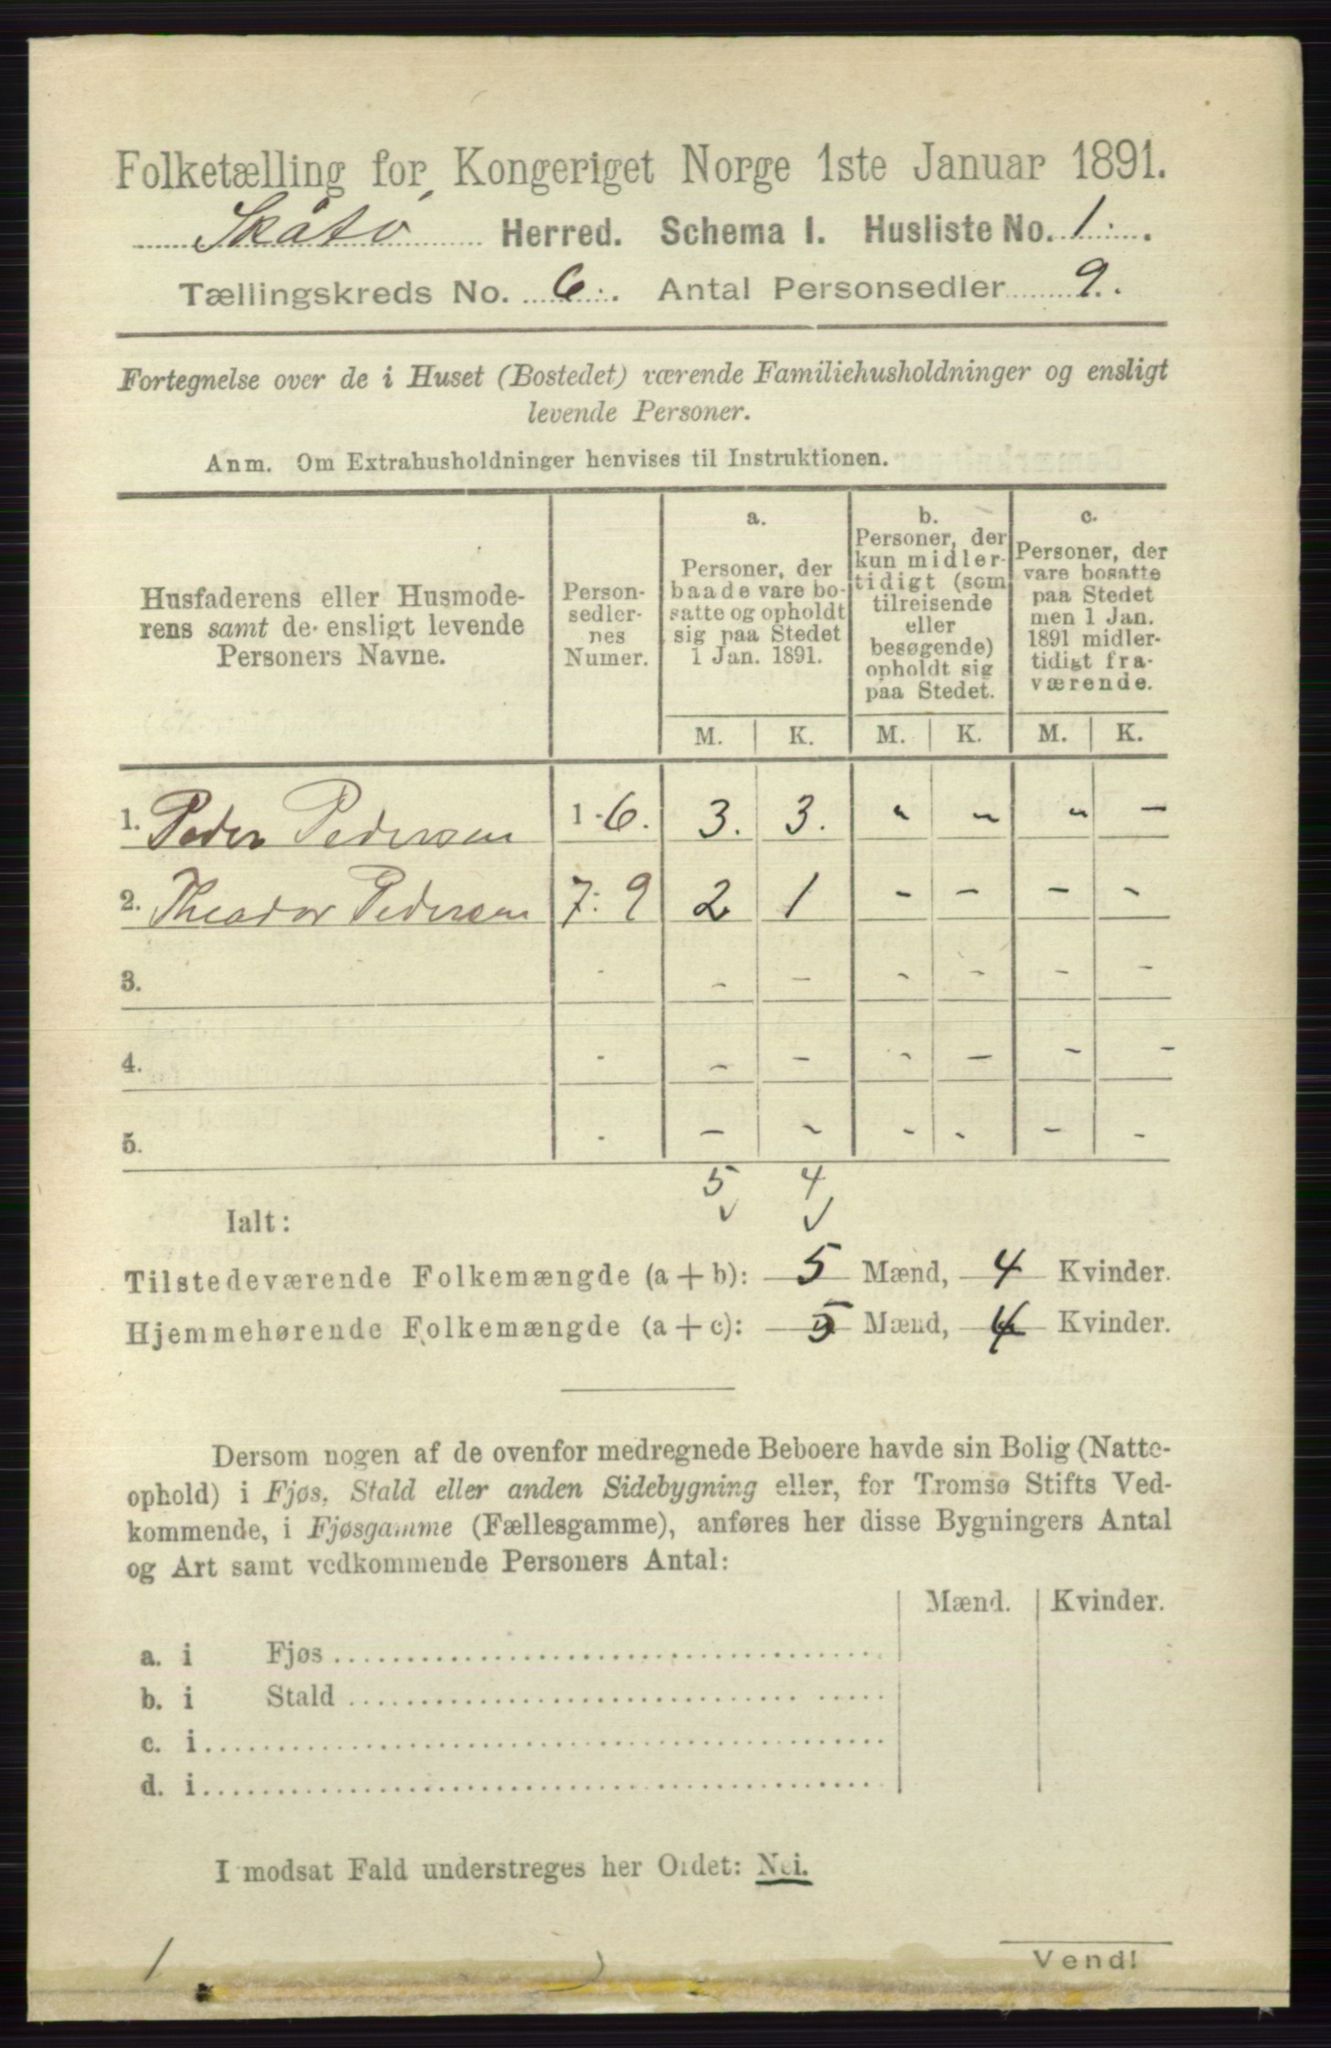 Folketælling for Kongeriget Norge 1ste Januar 1891.
Skåtø Herred. Schema I. Husliste No. 1.
Tællingskreds No. 6. Antal Personsedler 9.
Fortegnelse over de i Huset (Bostedet) værende Familiehusholdninger og ensligt
levende Personer.
Anm. Om Extrahusholdninger henvises til Instruktionen.
Husfaderens eller Husmode-
rens samt de ensligt levende
Personers Navne.
Person-
sedler-
nes
Numer.
a.
Personer, der
baade vare bo-
satte og opholdt
sig paa Stedet
1 Jan. 1891.
b.
Personer, der
kun midler-
tidigt (som
tilreisende
eller
besøgende)
opholdt sig
paa Stedet.
c.
Personer, der
vare bosatte
paa Stedet
men 1 Jan.
1891 midler-
tidigt fra-
værende.
M. K. M. K. M. K.
1. Peder Pedersen 1-6. 3. 3. - - - -
2. Theador Pedersen 7-9 2 1 - - - -
3. - - - - - - -
4. - - - - - - -
5. - - - - - - -
5 4
Ialt:
Tilstedeværende Folkemængde (a + b): 5 Mænd, 4 Kvinder.
Hjemmehørende Folkemængde (a + c): 5 Mænd, 4 Kvinder.
Dersom nogen af de ovenfor medregnede Beboere havde sin Bolig (Natte-
ophold) i Fjøs, Stald eller anden Sidebygning eller, for Tromsø Stifts Ved-
kommende, i Fjøsgamme (Fællesgamme), anføres her disse Bygningers Antal
og Art samt vedkommende Personers Antal:
Mænd. Kvinder.
a. i Fjøs
b. i Stald
c. i
d. i
I modsat Fald understreges her Ordet: Nei.
1
Vend!